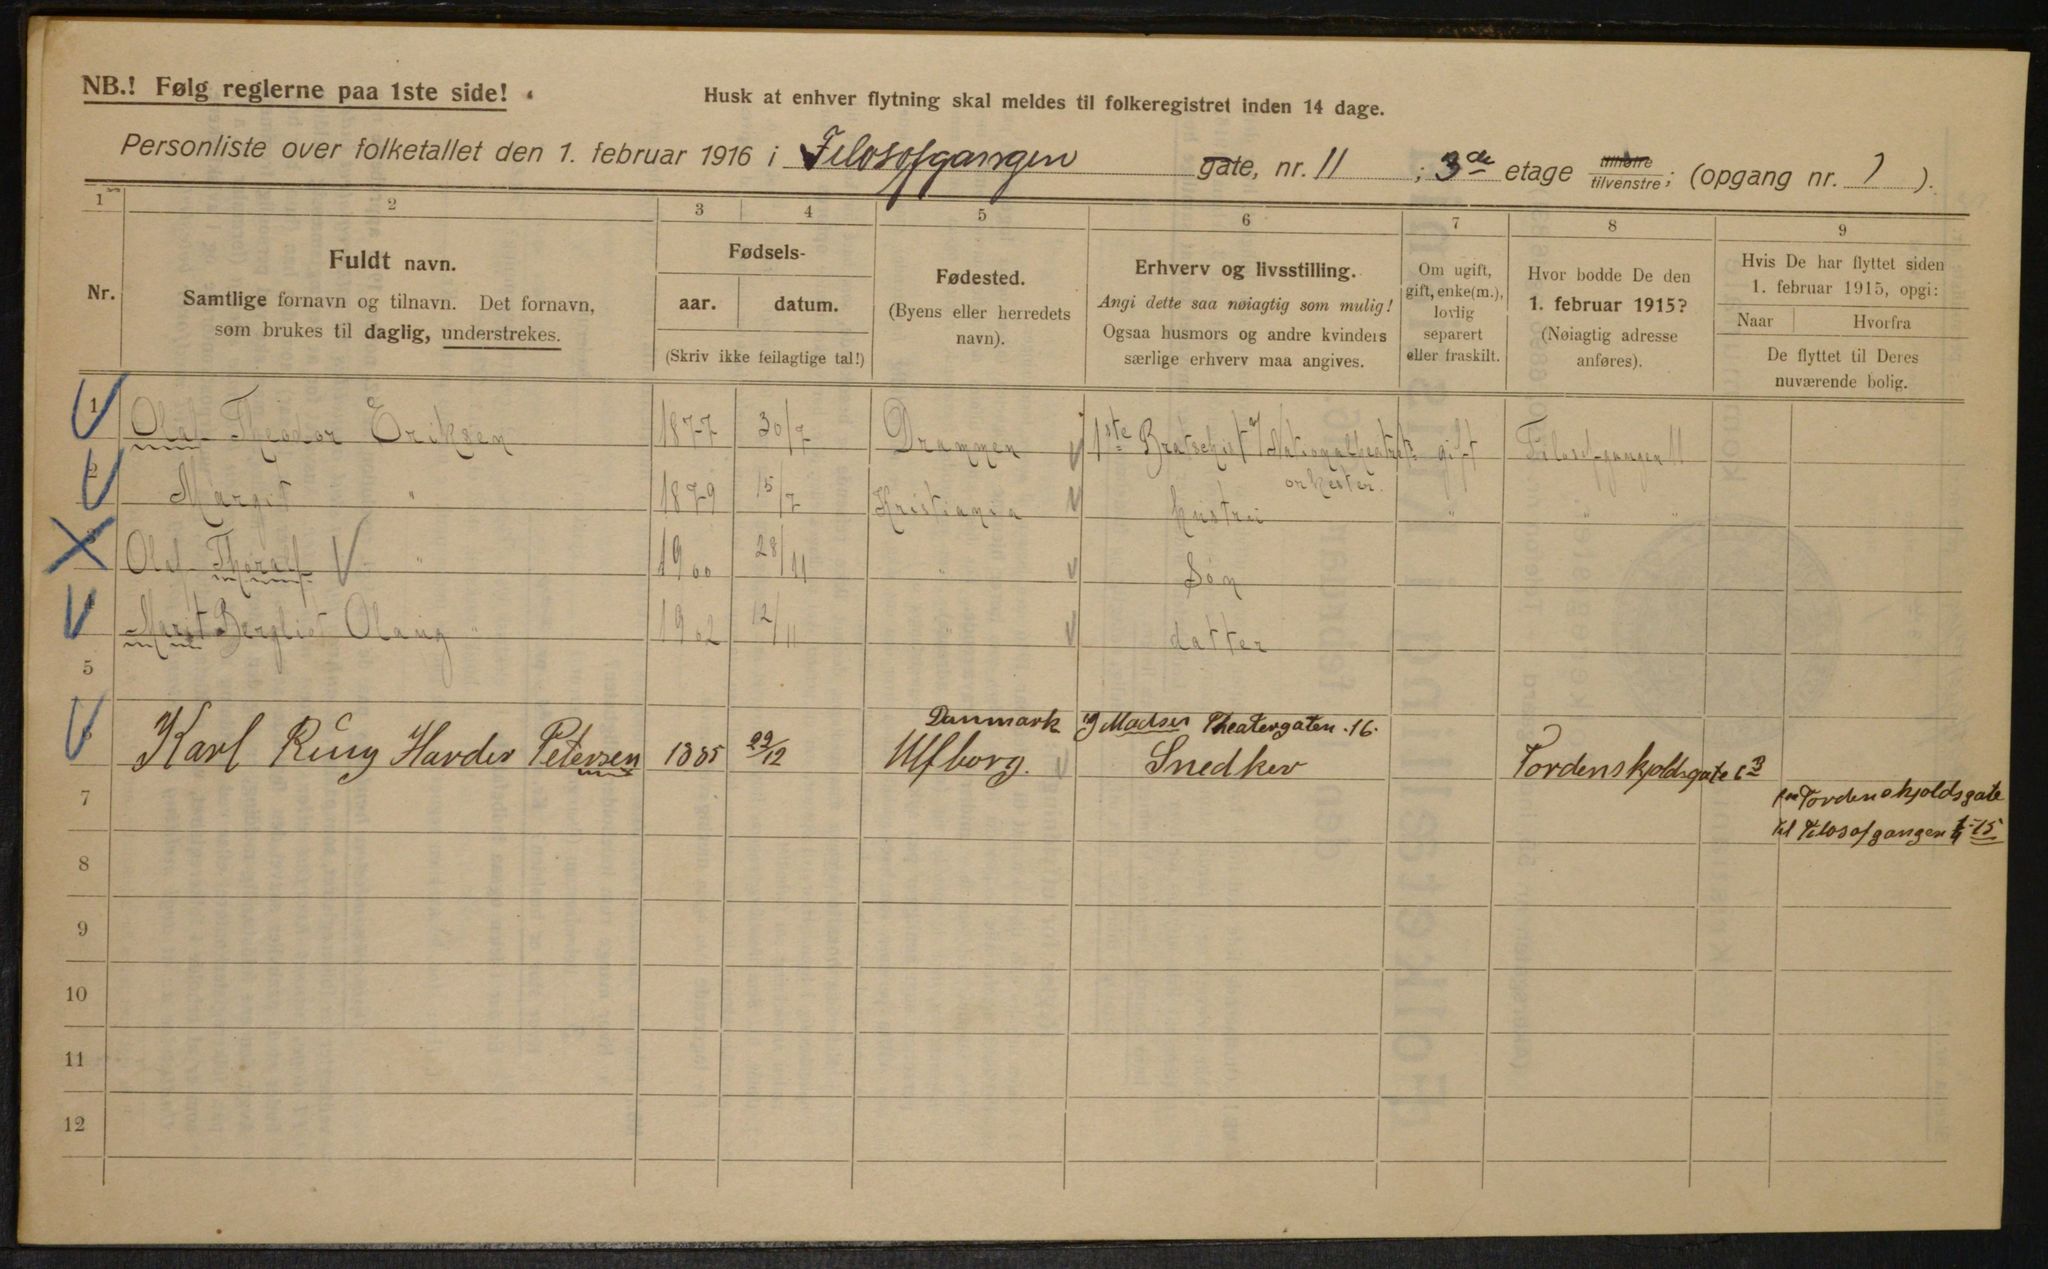 NB.! Følg reglerne paa 1ste side!
Husk at enhver flytning skal meldes til folkeregistret inden 14 dage.
Personliste over folketallet den 1. februar 1916 i Filosofgangen gate, nr. 11 ; 3de etage tilhøire tilvenstre; (opgang nr. 1 ).
1 2 3 4 5 6 7 8 9
Nr.
Fuldt navn.
Samtlige fornavn og tilnavn. Det fornavn,
som brukes til daglig, understrekes.
Fødsels-
aar. datum.
(Skriv ikke feilagtige tal!)
Fødested.
(Byens eller herredets
navn).
Erhverv og livsstilling.
Angi dette saa nøiagtig som mulig!
Ogsaa husmors og andre kvinders
særlige erhverv maa angives.
Om ugift,
gift, enke(m.),
lovlig
separert
eller fraskilt.
Hvor bodde De den
1. februar 1915?
(Nøiagtig adresse
anføres).
Hvis De har flyttet siden
1. februar 1915, opgi:
Naar Hvorfra
De flyttet til Deres
nuværende bolig.
1 Olaf Theodor Eriksen 1877 30/7 Drammen 1ste Bratschist Nationaltheatrets gift Filosofgangen 11
orkester.
2 Margit " 1879 15/7 Kristiania hustru " " "
3 Olaf Thoralf " 1900 28/11 " Søn
Marit Bergliot Olaug " 1902 12/11 " datter
5
Danmark Madsen Theatergaten 16.
Karl Ring Harder Petersen 1885 22/12 Ulfborg. Snedker Tordenskjoldsgate 6 B
7 fra Tordenskjoldsgate
til Filosofgangen 1/4-15
8
9
10
11
12